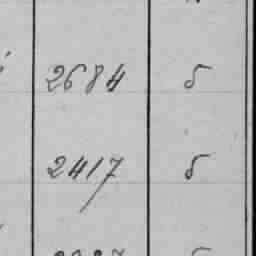 2684 5
2417 5